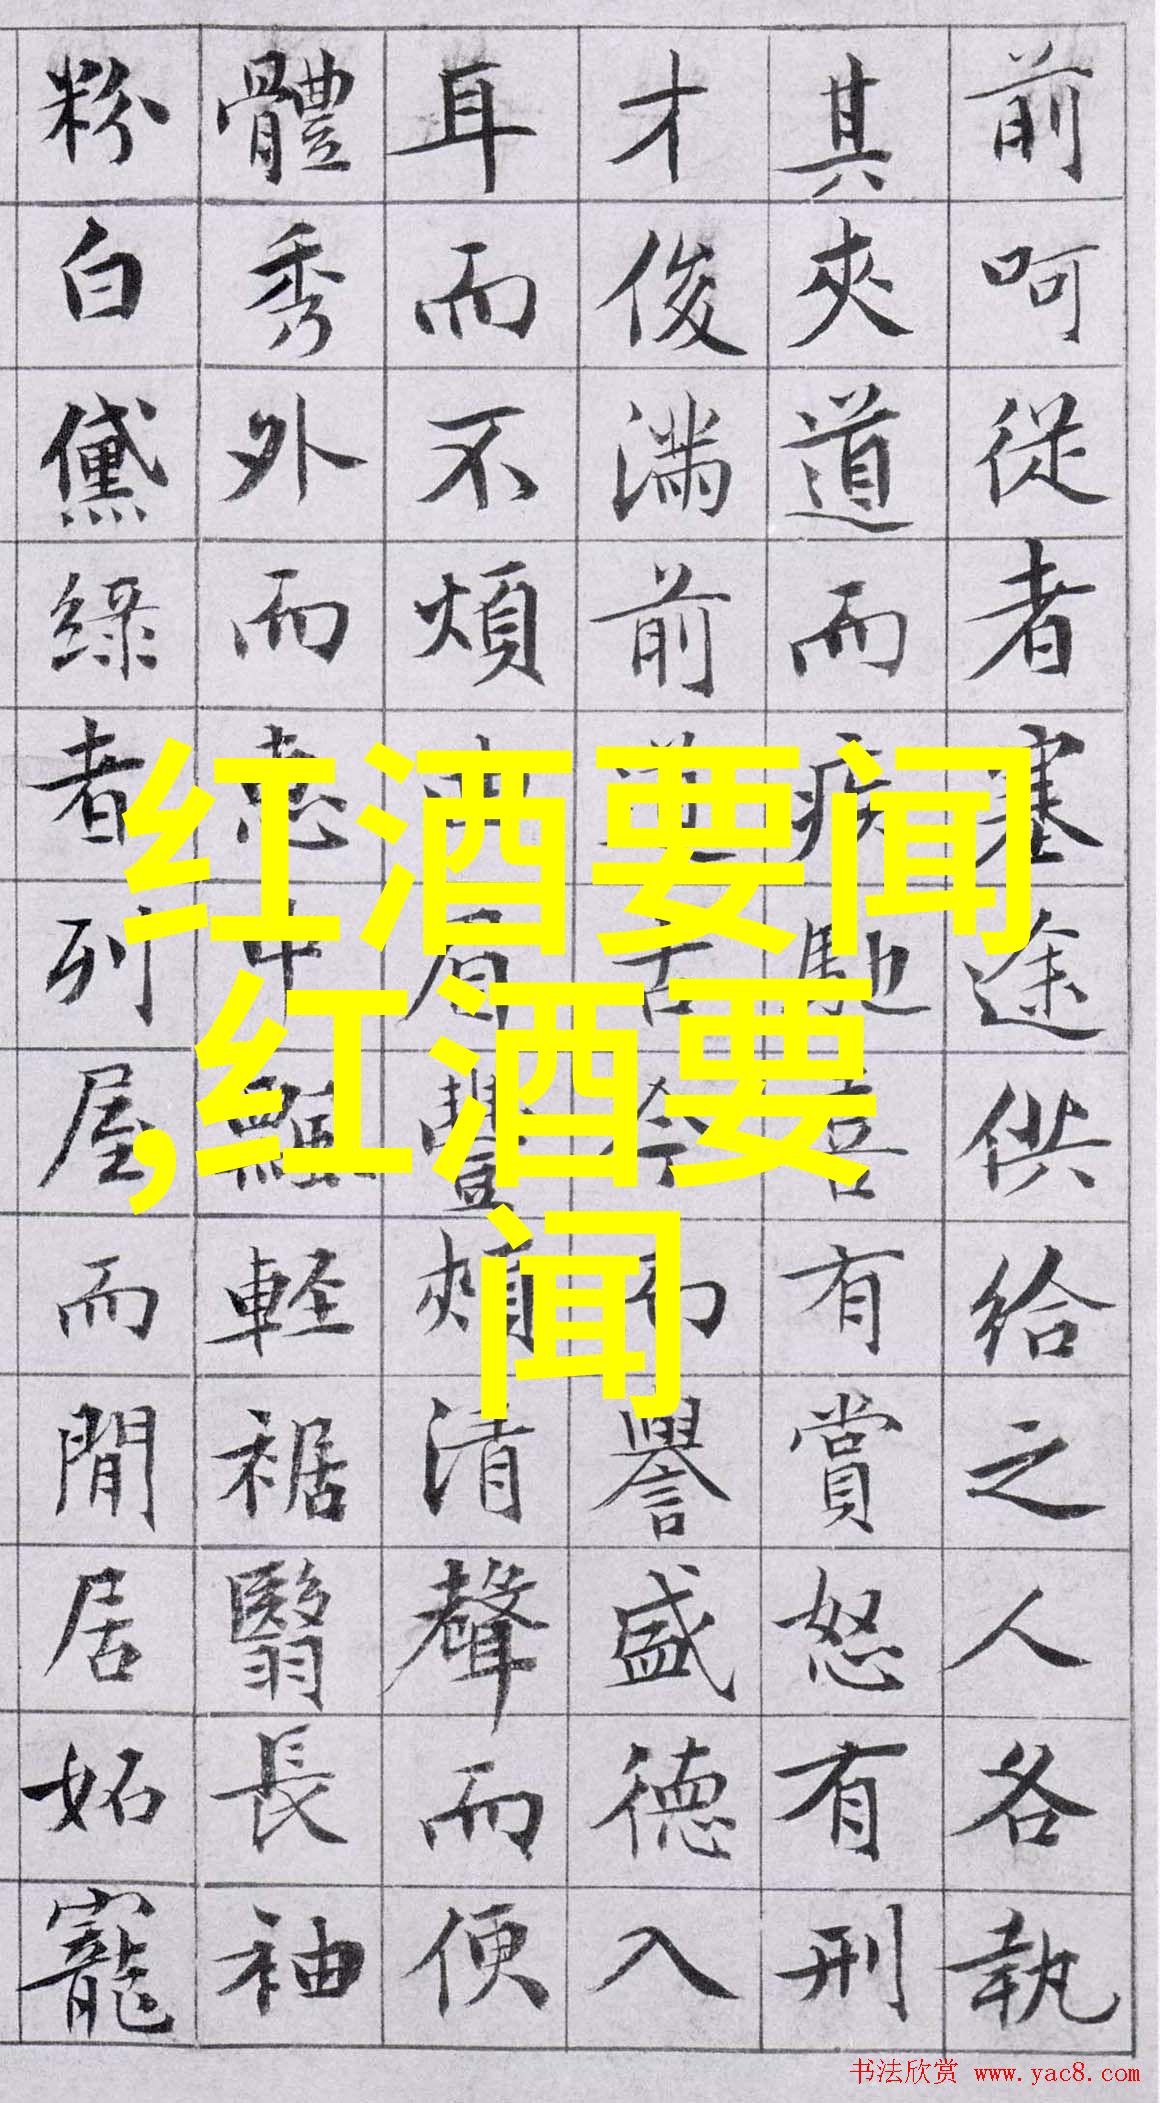 前呵從者塞途供給之人各執
其夾道而疾馳喜有賞怒有刑
才俊滿前道古今而譽盛德入
耳而不煩曲眉豐頰清聲而便
體秀外而惠中飄輕裾翳長袖
粉白黛綠者列屋而閒居妬寵
红酒要闻
,红酒要
闻
书法欣赏 www.yac8.com